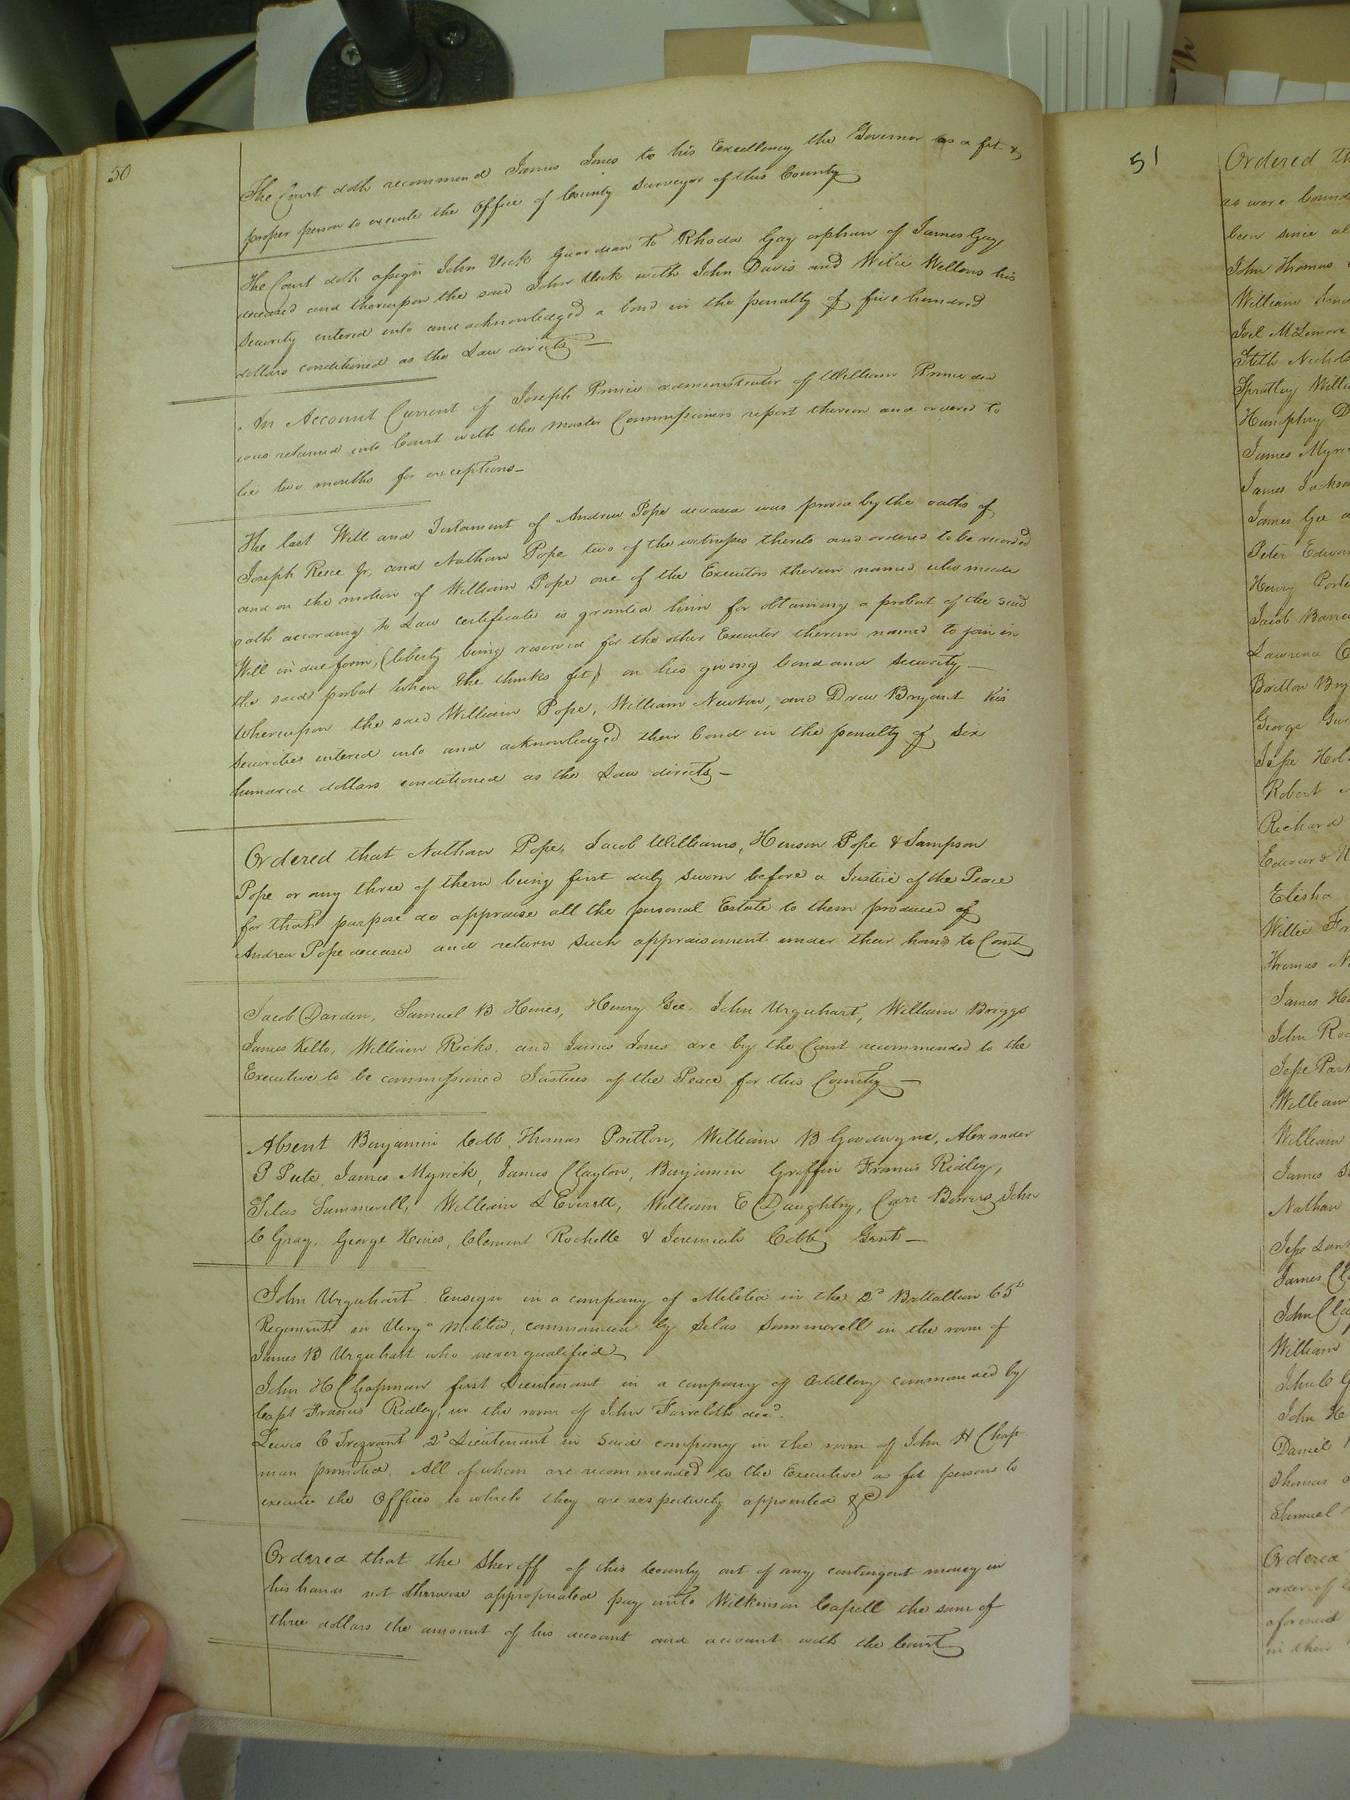 50
The Court doth recommend James Jones to his Excellency the Governor as a fit &
proper person to execute the Office of County Surveyor of this County
The Court doth assign John Uck Guardian to Rhoda Gay orphan of James Gay
deceased and thereupon the said John Uck with John Davis and Wilie Wellons his
Security entered into and acknowledged a bond in the penalty of five hundred
dollars conditioned as the Law directs
An Account Current of Joseph Prince administrator of William Prince dec
was returned into Court with the Master Commissioners report thereon and ordered to
lie two months for exceptions
The last Will and Testament of Andrew Pope deceased was proved by the oaths of
Joseph Reese Jr. and Nathan Pope two of the witnesses thereto and ordered to be recorded
and on the motion of William Pope one of the Executors therein named who made
oath according to Law certificate is granted him for obtaining a probat of the said
Will in due form, (liberty being reserved for the other Executor therein named to join in
the said probat when he thinks fit) on his giving bond and security
Whereupon the said William Pope, William Newton, and Drew Bryant his
securities entered into and acknowledged their bond in the penalty of Six
hundred dollars conditioned as the Law directs
Ordered that Nathan Pope, Jacob Williams, Henson Pope & Sampson
Pope or any three of them being first duly sworn before a Justice of the Peace
for that purpose do appraise all the personal Estate to them produced of
Andrew Pope deceased and return such appraisement under their hands to Court
Jacob Darden, Samuel B Hines, Henry Gee, John Urquhart, William Briggs
James Kello, William Ricks, and James Jones are by the Court recommended to the
Executive to be commissioned Justices of the Peace for this County
Absent Benjamin Cobb Thomas Pretlow, William B Goodwyn, Alexander
P Peete, James Myrick, James Clayton, Benjamin Griffin Francis Ridley,
Silas Summerell, William L Everett, William E Daughtry, Carr Bowers, John
C Gray, George Hines, Clement Rochelle & Jeremiah Cobb Gent
John Urquhart Ensign in a company of Militia in the 2d Battallion 65th
Regiment in Virga Militia, commanded by Silas Summerell in the room of
James B Urquhart who never qualified
John H Chapman first Lieutenant in a company of Artillery commanded by
Capt Francis Ridley, in the room of John dec'd.
Lewis C Trezvant 2d Lieutenant in said company in the room of John H Chap
man promoted. All of whom are recommended to the Executive as fit persons to
execute the Offices to which they are respectively appointed &c
Ordered that the Sheriff of this County out of any contingent money in
his hands not otherwise appropriated pay unto Wilkinson Capell the sum of
three dollars the amount of his account and account with the Court
51
Ordered th
as were bound
been since al
John Thomas
William
Joel McLemore
Stith Nichols
Spratley Willi
Humphry D
James Myri
James Jackso
James Gee
Peter Edwar
Henry Porte
Jacob Barre
Lawrence
Britton Bry
George
Jesse Hol
Robert
Richard
Edward
Elisha
Willie
Thomas
James
John
Jesse Par
William
William
James
Nathan
Jesse
James Cl
John Cla
William
John C G
John He
Daniel
Thomas
Samuel
Ordered
order of
aforesaid
in their